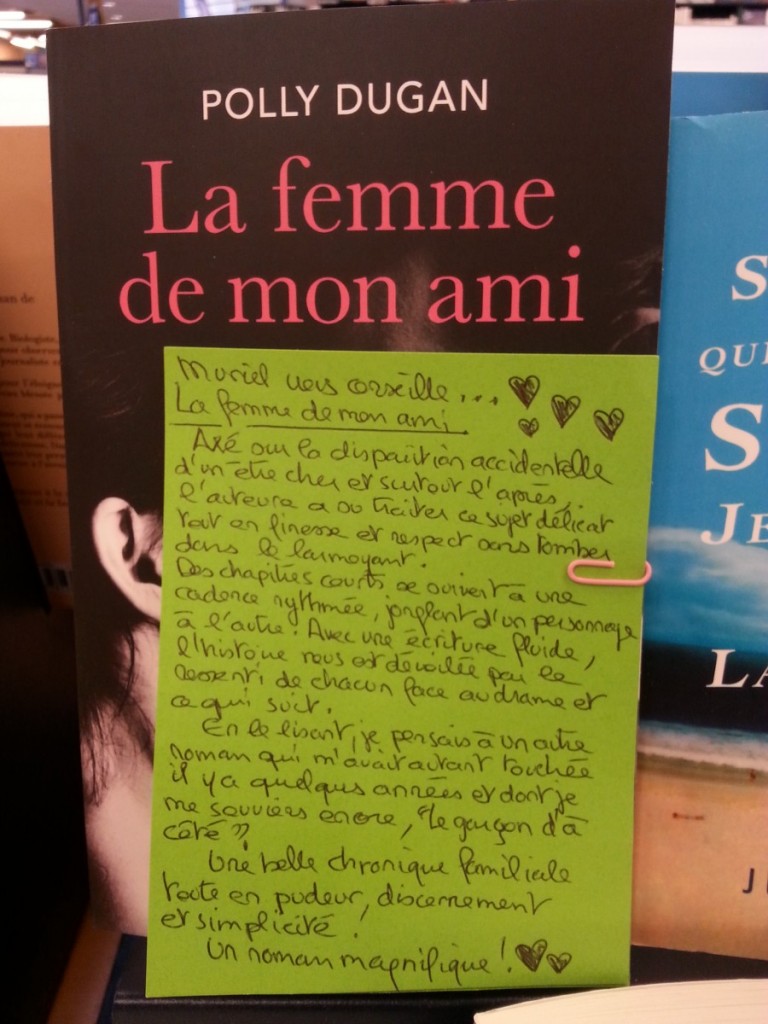 POLLY DUGAN
La femme
de mon ami
Muriel vous conseille...
La femme de mon ami.
Axé sur la disparition accidentelle
d'un être cher et surtout l'après,
l'auteure a su traiter ce sujet délicat
tout en finesse et respect sans tomber
dans le larmoyant.
Des chapitres courts se suivent à une
cadence rythmée, jonglant d'un personnage
à l'autre. Avec une écriture fluide,
l'histoire nous est dévoilée par le
ressenti de chacun face au drame et
ce qui suit.
En le lisant, je pensais à un autre
roman qui m'avait autant touchée
il y a quelques années et dont je
me souviens encore, "Le garçon d'à
côté".
Une belle chronique familiale
toute en pudeur, discernement
et simplicité!
Un roman magnifique!
S
QUE
S
JE
LA
J